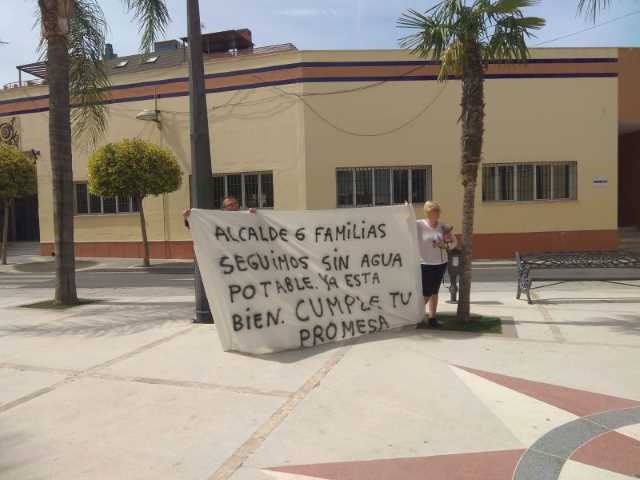 ALCALDE 6 FAMILIAS
SEGUIMOS SIN AGUA
POTABLE. YA ESTA
BIEN. CUMPLE TU
PROMESA